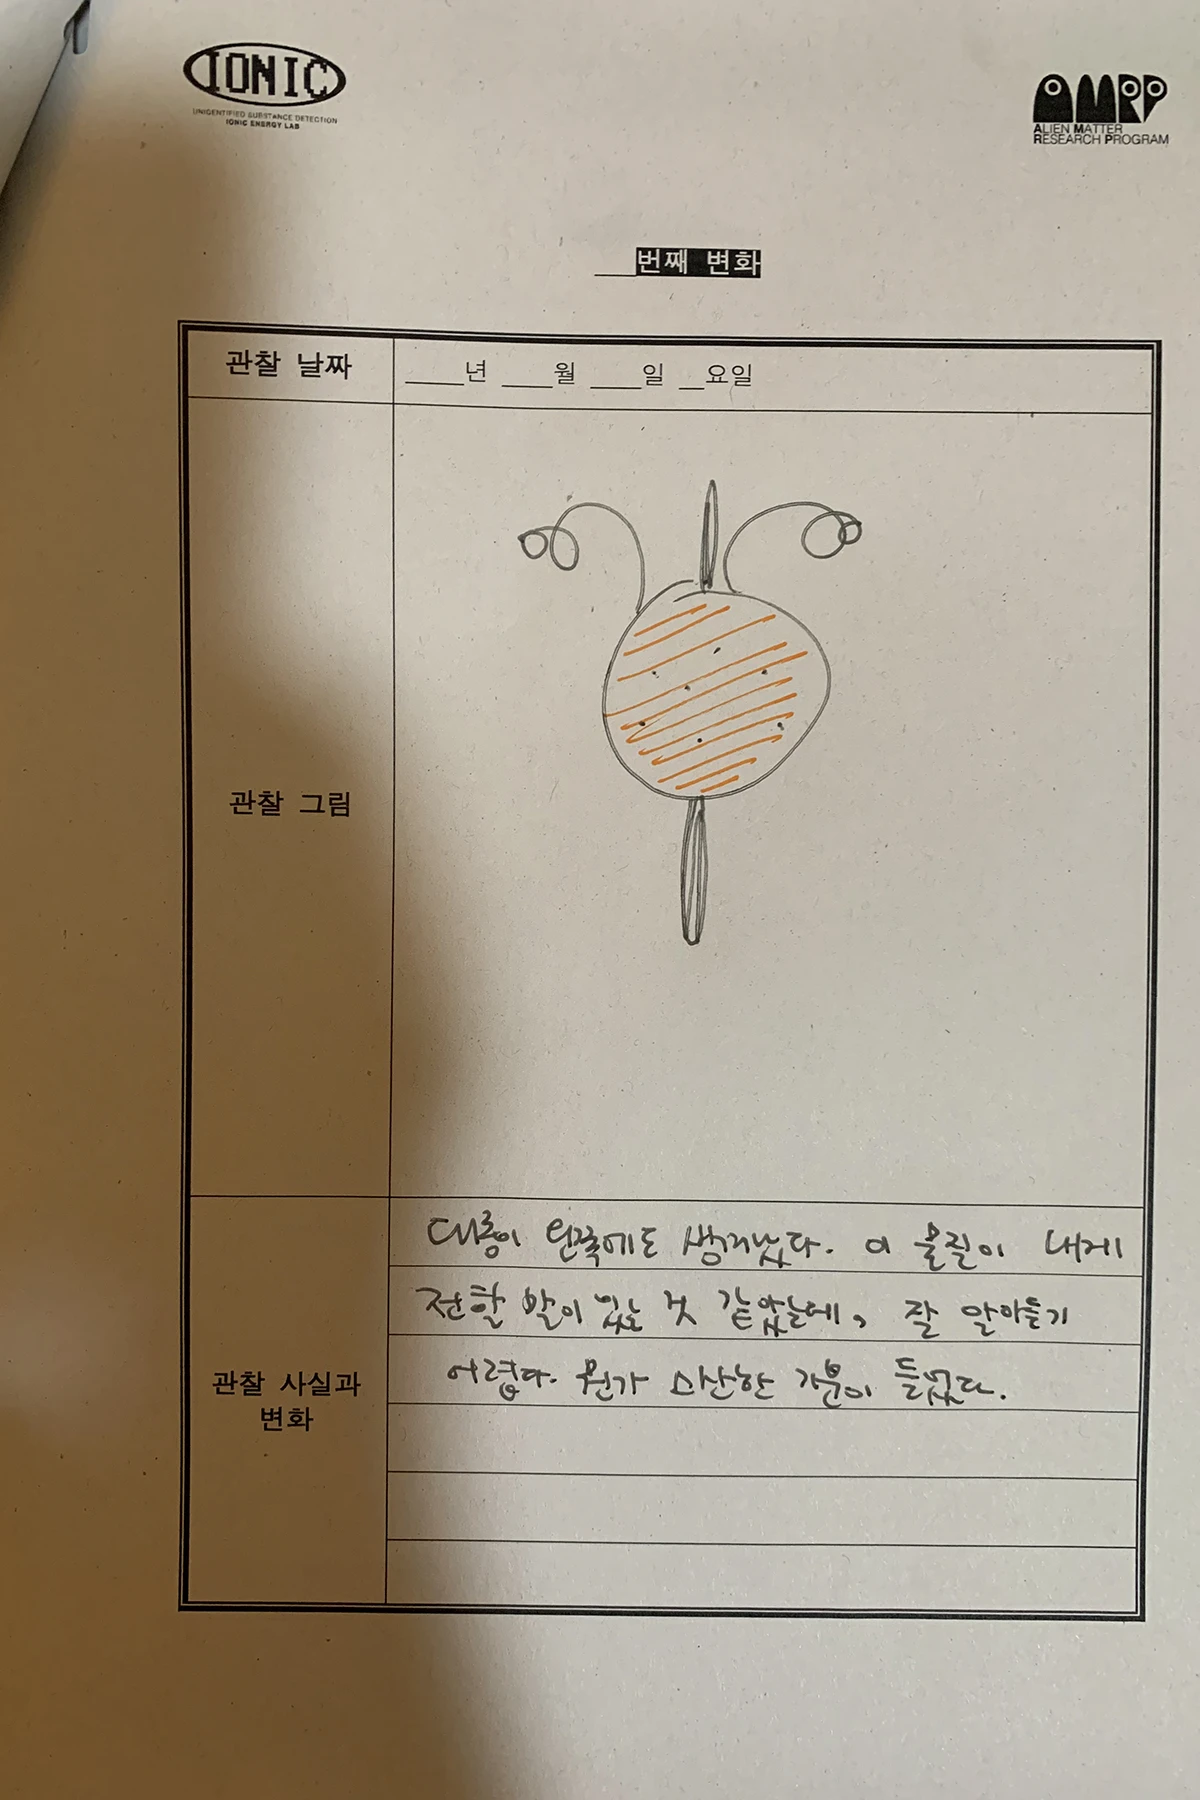 IONIC
UNIDENTIFIED SUBSTANCE DETECTION
IONIC ENERGY LAB
AMRP
ALIEN MATTER
RESEARCH PROGRAM
___번째 변화
관찰 날짜
____년 ____월 ____일 __요일
관찰 그림
관찰 사실과
변화
대롱이 왼쪽에도 생겨났다. 이 물질이 내게
전할 말이 있는 것 같았는데, 잘 알아듣기
어렵다. 뭔가 스산한 기분이 들었다.